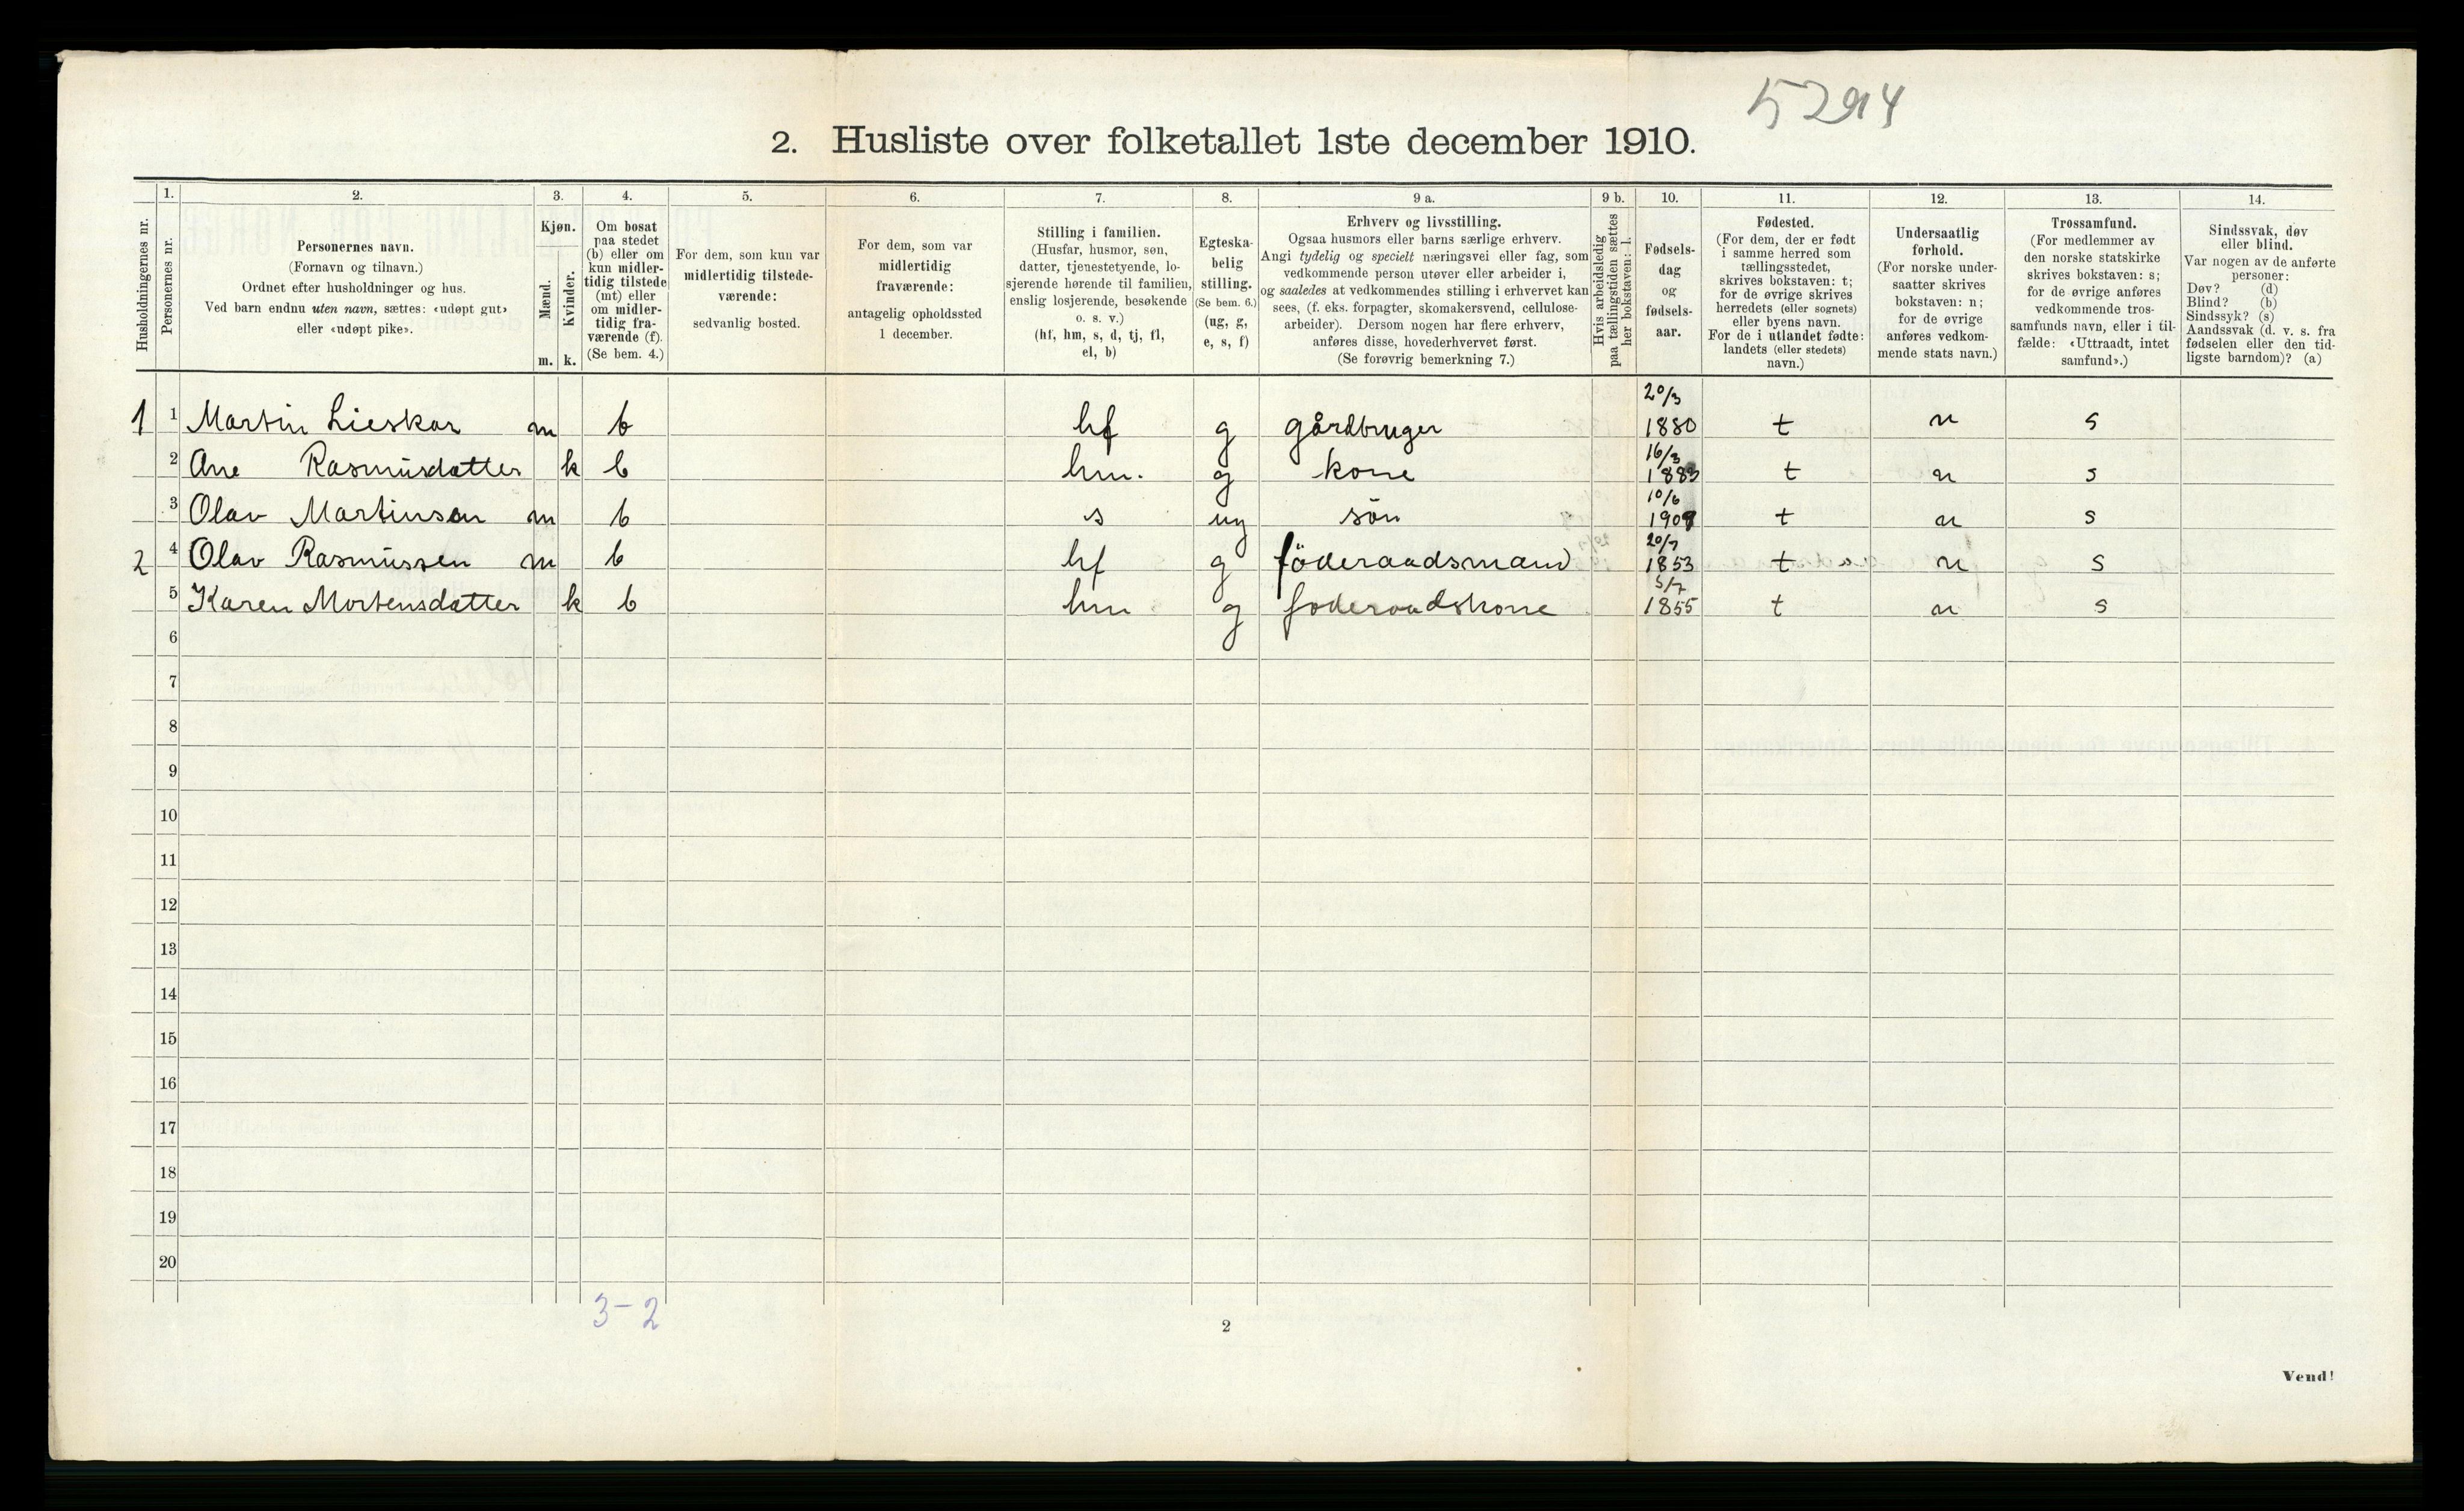 5294
2. Husliste over folketallet 1ste december 1910.
Husholdningernes nr.
1.
Personernes nr.
2.
Personernes navn.
(Fornavn og tilnavn.)
Ordnet efter husholdninger og hus.
Ved barn endnu uten navn, sættes: «udøpt gut»
eller «udøpt pike».
3.
Kjøn.
Mænd.
Kvinder.
m. k.
4.
Om bosat
paa stedet
(b) eller om
kun midler-
tidig tilstede
(mt) eller
om midler-
tidig fra-
værende (f).
(Se bem. 4.)
5.
For dem, som kun var
midlertidig tilstede-
værende:
sedvanlig bosted.
6.
For dem, som var
midlertidig
fraværende:
antagelig opholdssted
1 december.
7.
Stilling i familien.
(Husfar, husmor, søn,
datter, tjenestetyende, lo-
sjerende hørende til familien,
enslig losjerende, besøkende
o. s. v.)
(hf, hm, s, d, tj, fl,
el, b)
8.
Egteska-
belig
stilling.
(Se bem. 6.)
(ug, g,
e, s, f)
9 a.
Erhverv og livsstilling.
Ogsaa husmors eller barns særlige erhverv.
Angi tydelig og specielt næringsvei eller fag, som
vedkommende person utøver eller arbeider i,
og saaledes at vedkommendes stilling i erhvervet kan
sees, (f. eks. forpagter, skomakersvend, cellulose-
arbeider). Dersom nogen har flere erhverv,
anføres disse, hovederhvervet først.
(Se forøvrig bemerkning 7.)
9 b.
Hvis arbeidsledig
paa tællingstiden sættes
her bokstaven: l.
10.
Fødsels-
dag
og
fødsels-
aar.
11.
Fødested.
(For dem, der er født
i samme herred som
tællingsstedet,
skrives bokstaven: t;
for de øvrige skrives
herredets (eller sognets)
eller byens navn.
For de i utlandet fødte:
landets (eller stedets)
navn.)
12.
Undersaatlig
forhold.
(For norske under-
saatter skrives
bokstaven: n;
for de øvrige
anføres vedkom-
mende stats navn.)
13.
Trossamfund.
(For medlemmer av
den norske statskirke
skrives bokstaven: s;
for de øvrige anføres
vedkommende tros-
samfunds navn, eller i til-
fælde: «Uttraadt, intet
samfund».)
14.
Sindssvak, døv
eller blind.
Var nogen av de anførte
personer:
Døv? (d)
Blind? (b)
Sindssyk? (s)
Aandssvak (d. v. s. fra
fødselen eller den tid-
ligste barndom)? (a)
1 1 Martin Lieskar m b hf g gårdbruger 20/3 1880 t n s
2 Ane Rasmusdatter k b hm. g kone 16/3 1883 t n s
3 Olav Martinsen m b s ug sön 10/6 1909 t n s
2 4 Olav Rasmussen m b hf g föderaadsmand 20/7 1853 t n s
5 Karen Mortensdatter k b hm g foderaadskone 5/7 1855 t n s
6
7
8
9
10
11
12
13
14
15
16
17
18
19
20
3-2
2
Vend!